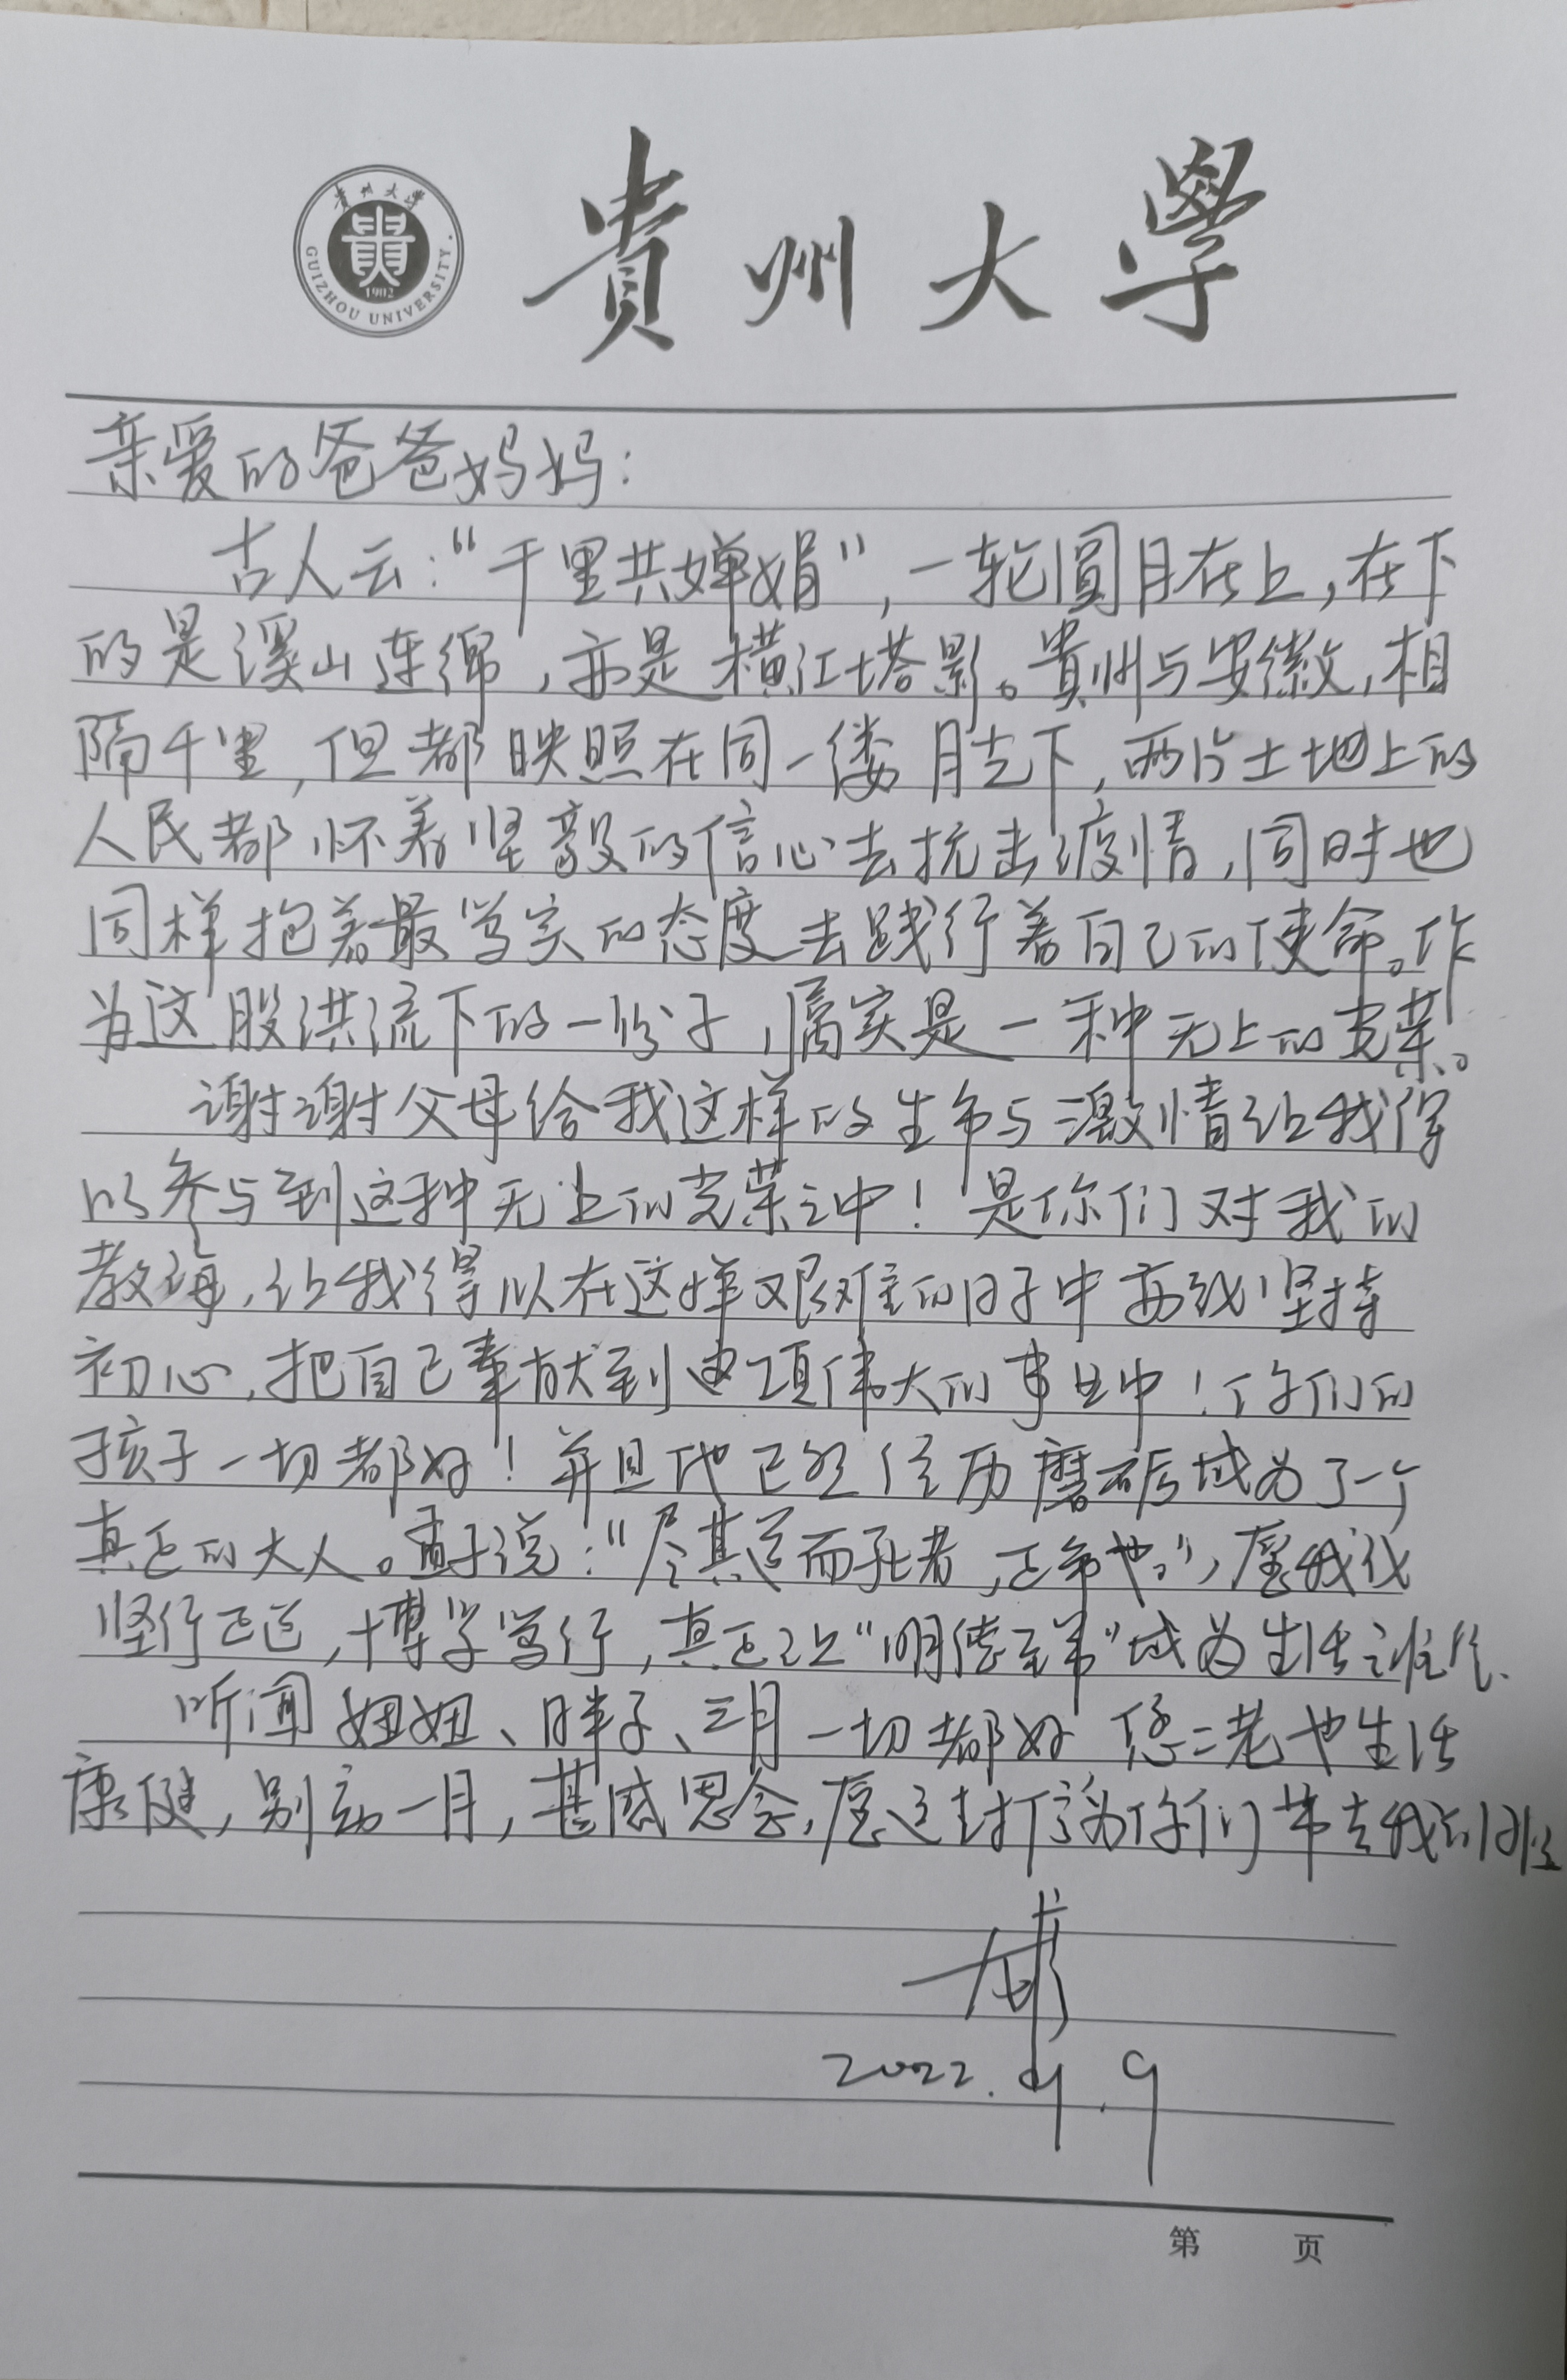 貴州大學
貴州大學
貴
1902
GUIZHOU UNIVERSITY
亲爱的爸爸妈妈：
古人云：“千里共婵娟”，一轮圆月在上，在下
的是溪山连绵，亦是横江塔影。貴州与安徽，相
隔千里，但都映照在同一缕月光下，两片土地上的
人民都怀着坚毅的信心去抗击疫情，同时也
同样抱着最笃实的态度去践行着自己的使命。作
为这股洪流下的一份子，属实是一种无上的光荣。
谢谢父母给我这样的生命与激情让我得
以参与到这种无上的光荣之中！是你们对我的
教诲，让我得以在这样艰难的日子中亦或坚持
初心，把自己奉献到这项伟大的事业中！你们的
孩子一切都好！并且他已经经历磨砺成为了一个
真正的大人。孟子说：“尽其道而死者，正命也。”，愿我们
坚行正道，博学笃行，真正让“明德至善”成为生活
听闻妞妞、胖子、三月一切都好 您二老也生活
康健，别去一月，甚感思念，愿这封信为你们带去我的
2022.9.9
第 页